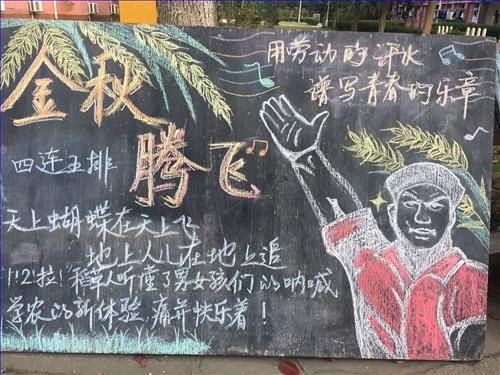 金秋
腾飞
用劳动的汗水
谱写青春的乐章
四连五排
天上蝴蝶在天上飞
地上人儿在地上追
1!2!拉!稻草人听懂了男女孩们的呐喊
学农的新体验,痛并快乐着!